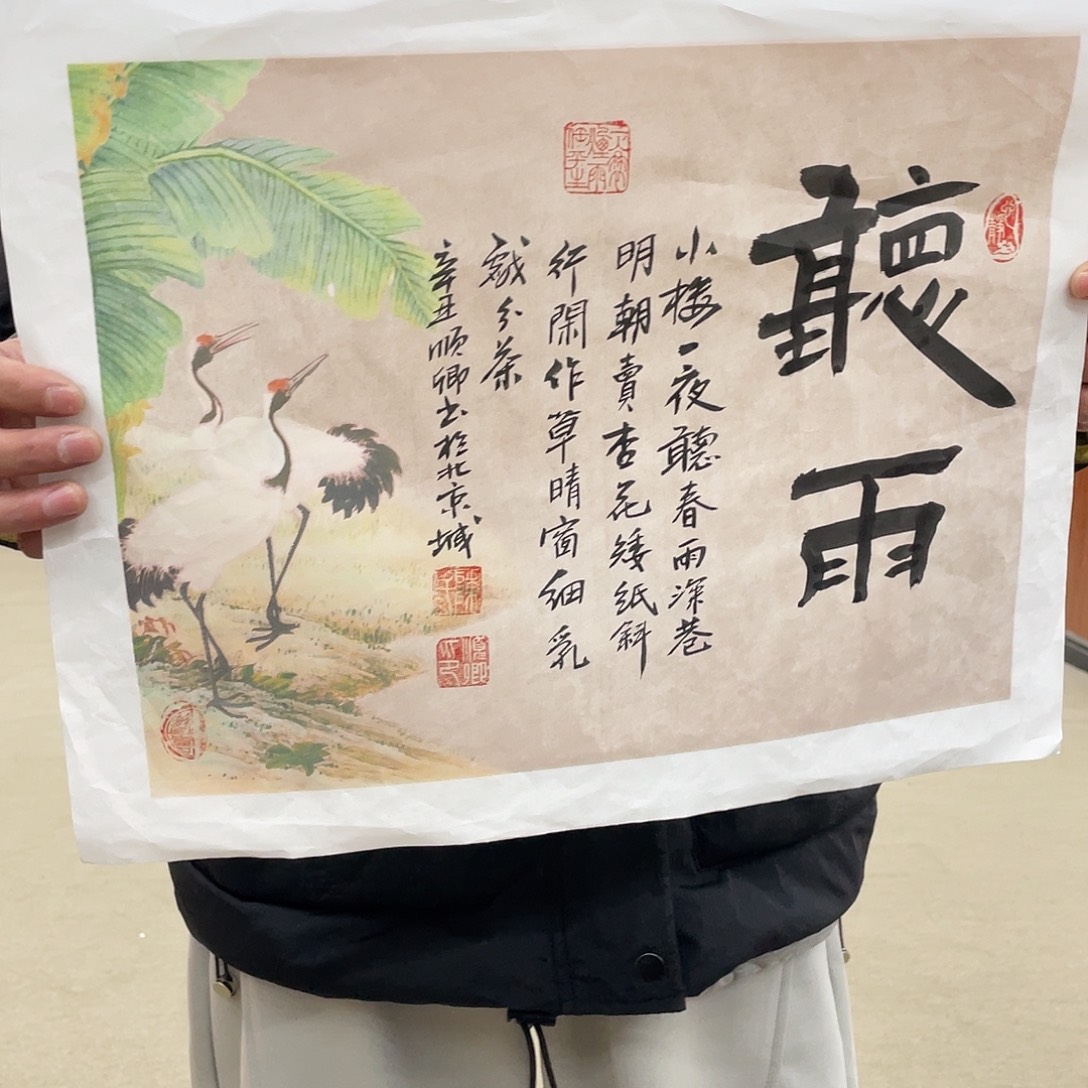 聽雨
小楼一夜聽春雨深巷
明朝賣杏花矮紙斜
行閑作草晴窗細乳
戲分茶
辛丑順卿书於北京城
順卿